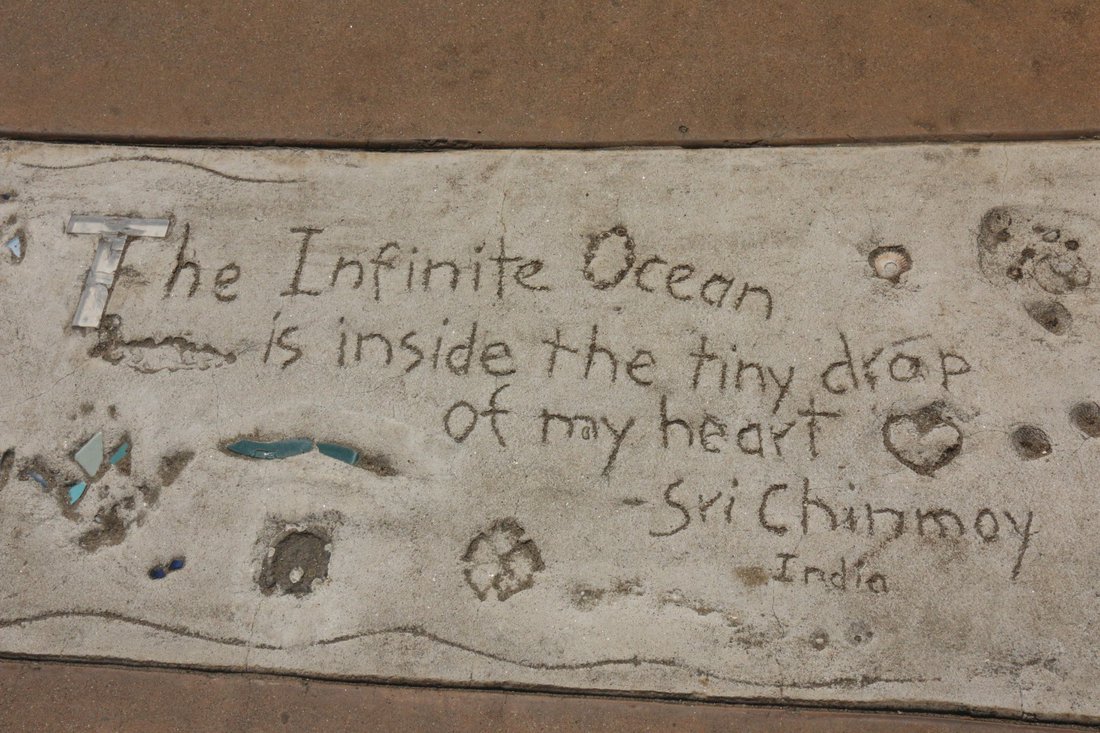 The Infinite Ocean
is inside the tiny drop
of my heart
-Sri Chinmoy
India